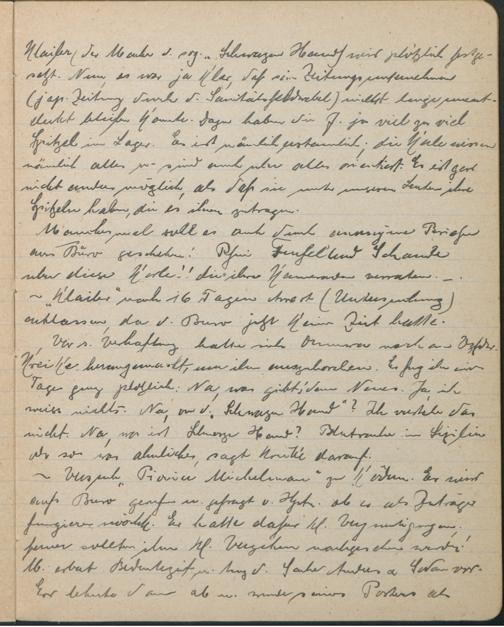 Klaiber (der Macher d. sog. „Schwarzen Hand") wird plötzlich festge-
setzt. Nun, es war ja klar, daß sein Zeitungsunternehmen
(jap. Zeitung durch d. Sanitätsfeldwebel) nicht lange unent-
deckt bleiben konnte. Dazu haben die J. ja viel zu viel
Spitzel im Lager. Es ist nämlich erstaunlich, die Kerle wissen
nämlich alles u. sind auch über alles orientiert. Es ist gar
nicht anders möglich, als daß sie unter unseren Leuten ihre
Spitzeln haben, die es ihnen zutragen.
Manchesmal soll es auch durch anonyme Briefe
ans Büro geschehen! Pfui Teufel und Schande
über diese Kerle!! die ihre Kameraden verraten. —
~ "Klaiber" nach 16 Tagen Arrest (Untersuchung)
entlassen, da d. Büro jetzt keine Zeit hatte.
Vor s. Verhaftung hatte sich noch an
herangemacht, um ihn auszuholen. Er frug ihn eines
Tages ganz plötzlich: Na, was gibt's denn Neues. Ja, ich
weiss nichts. Na, von d. „Schwarzen Hand"? Ich verstehe das
nicht. Na, was ist Schwarze Hand? Blutrache in Sizilien
oder so was ähnliches, sagt darauf.
~ Versuch, "Pionier Michelmann" zu ködern. Er wird
aufs Büro gerufen u. gefragt v. ob er als Zuträger
fungieren möchte. Er hätte dafür kl. Vergünstigungen,
ferner sollten ihm kl. Vergehen nachgesehen werden!
M. erbat Bedenkzeit u. trug d. Sache vor.
lehnte dann ab u. wurde seines Postens als